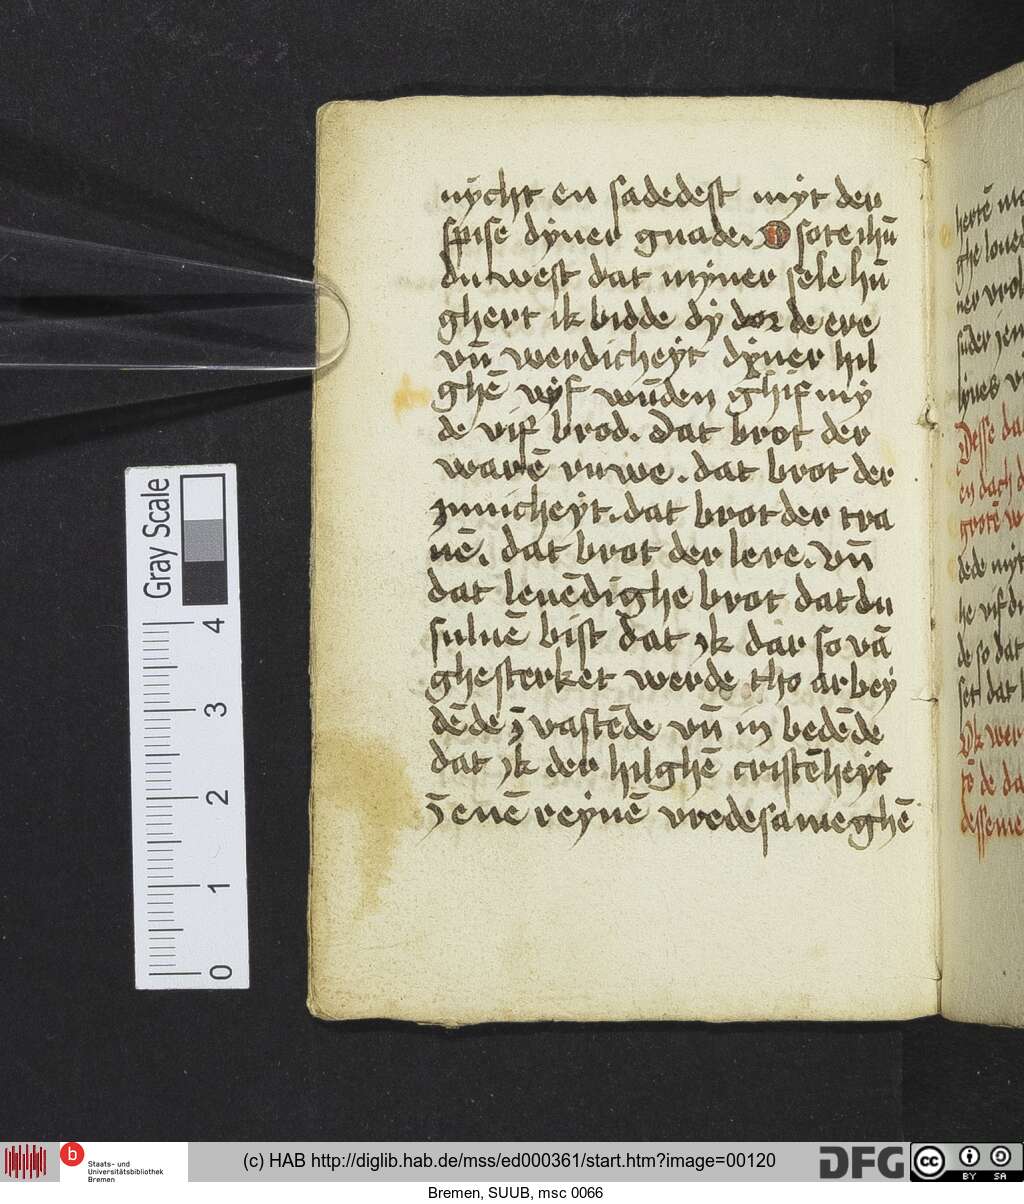 nycht en sadedest myt der
spise dyner gnade. O sote ihū
du west dat myner sele hū
ghert ik bidde dy dor de ere
vn̄ werdicheyt dyner hil
ghē vyf wūden ghif my
de vif brod. Dat brot der
warē ruwe. dat brot der
ynnicheyt. dat brot der tra
nē. dat brot der lere. vn̄
dat leuēdighe brot dat du
suluē bist Dat ik dar so vā
ghesterket werde tho arbey
dēde ī vastēde vn̄ in bedēde
dat ik der hilghē cristēheyt
ī enē reynē vredesameghē
hertē
ghe
Desse
en dach
grotē
dede myt
he vif
de so dat
set dat
Ok wer
tē de
Gray Scale
4
3
2
1
0
b
Staats- und
Universitätsbibliothek
Bremen
(c) HAB http://diglib.hab.de/mss/ed000361/start.htm?image=00120
DFG
cc
BY SA
Bremen, SUUB, msc 0066